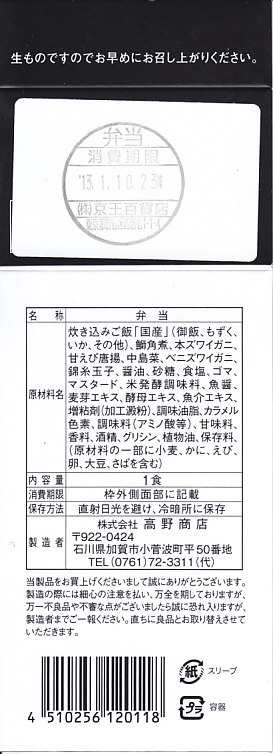 生ものですのでお早めにお召し上がりください。
弁当
消費期限
'13.1.10.2
㈱京王百貨店
名称 弁当
原材料名 炊き込みご飯「国産」(御飯、もずく、
いか、その他)、鰤角煮、本ズワイガニ、
甘えび唐揚、中島菜、ベニズワイガニ、
錦糸玉子、醤油、砂糖、食塩、ゴマ、
マスタード、米発酵調味料、魚醤、
麦芽エキス、酵母エキス、魚介エキス、
増粘剤(加工澱粉)、調味油脂、カラメル
色素、調味料(アミノ酸等)、甘味料、
香料、酒精、グリシン、植物油、保存料、
(原材料の一部に小麦、かに、えび、
卵、大豆、さばを含む)
内容量 1食
消費期限 枠外側面部に記載
保存方法 直射日光を避け、冷暗所に保存
製造者 株式会社 高野商店
〒922-0424
石川県加賀市小菅波町平50番地
TEL (0761)72-3311(代)
当製品をお買上げくださいまして誠にありがとうございます。
製造の際には細心の注意を払い、万全を期しておりますが、
万一不良品や不審な点がございましたら誠に恐れ入りますが、
製造者までご一報ください。直ちに良品とお取り替えさせて
いただきます。
紙 スリーブ
プラ 容器
4 510256 120118